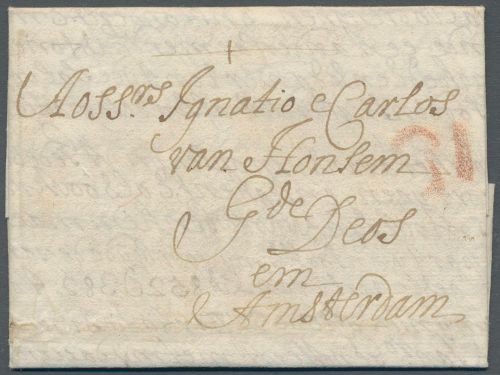 Aoss.rs Ignatio e Carlos
van Honsem
G.de Deos
em
Amsterdam